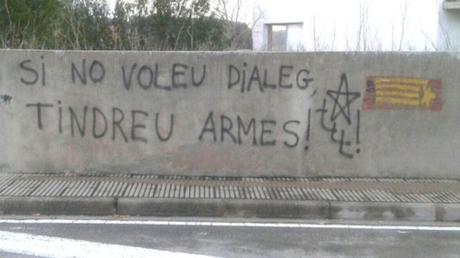 Si NO VOLEU DiALEG,
TiNDREU ARMES!